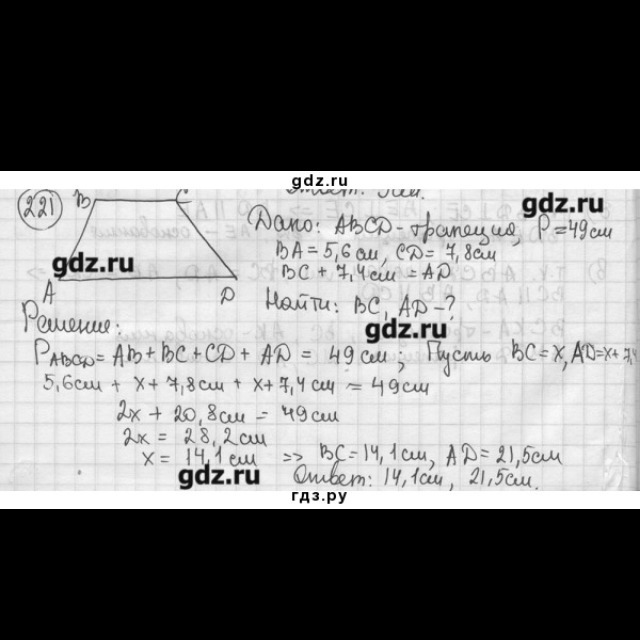 gdz.ru
Ответ:
221
B C
gdz.ru
Дано: ABCD - трапеция, P = 49 см
BA = 5,6 см, CD = 7,8 см
gdz.ru
BC + 7,4 см = AD
A D
Найти: BC, AD - ?
Решение:
gdz.ru
P ABCD = AB + BC + CD + AD = 49 см; Пусть BC = x, AD = x + 7,4
5,6 см + x + 7,8 см + x + 7,4 см = 49 см
2x + 20,8 см = 49 см
2x = 28,2 см
x = 14,1 см => BC = 14,1 см, AD = 21,5 см
gdz.ru
Ответ: 14,1 см, 21,5 см.
гдз.ру